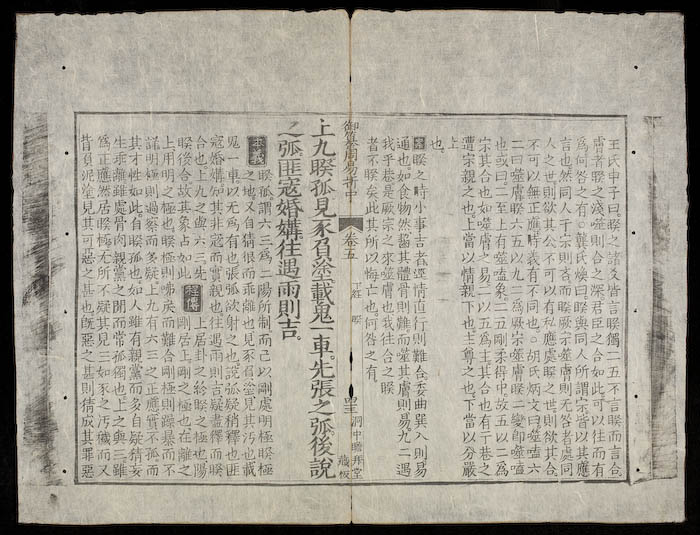 王氏申子曰。睽之諸爻皆言睽獨二五不言睽而言合。
膚者睽之淺。噬則合之深。君臣之合如此。可以往而有
爲何咎之有○龔氏煥曰睽與同人所謂宗皆以其應
言也然同人于宗則吝而睽厥宗噬膚則无咎者處同
人之世則欲其公不可以有私應處睽之世則欲其合。
不可以無正應時義有不同也。○胡氏炳文曰噬嗑六
二曰噬膚睽六五以九二爲厥宗噬膚睽二變卽噬嗑
也或曰二至上有噬嗑象。二五剛柔得中故五以二爲
宗其合也如噬膚之易二以五爲主其合也有于巷之
遭宗親之也。上當以情親下也主尊之也。下當以分嚴
上
也。
案睽之時小事吉者逕情直行則難合委曲巽入則易
通也如食物然齧其體骨則難而噬其膚則易九二遇
我乎巷是厥宗之來噬膚也我往合之睽
者不睽矣此其所以悔亡也何咎之有。
御纂周易折中
卷五
下經 睽
洞中瞻拜堂
藏板
上九睽孤見豕負塗載鬼一車。先張之弧後說
之弧匪寇婚媾往遇雨則吉。
本義 睽孤謂六三爲二陽所制而己以剛處明極睽極
之地又自猜狠而乖離也見豕負塗見其污也載
鬼一車以无爲有也張弧欲射之也說弧疑稍釋也匪
寇婚媾知其非寇而實親也往遇雨則吉疑盡釋而睽
合也上九之與六三先
睽後合故其象占如此 程傳 上居卦之終睽之極也陽
剛居上剛之極也在離之
上用明之極也睽極則咈戾而難合剛極則躁暴而不
詳明極則過察而多疑上九有六三之正應實不孤而
其才性如此自睽孤也如人雖有親黨而多自疑猜妄
生乖離雖處骨肉親黨之閒而常孤獨也上之與三雖
爲正應然居睽極无所不疑其見三如豕之污穢而又
背負泥塗見其可惡之甚也旣惡之甚則猜成其罪惡